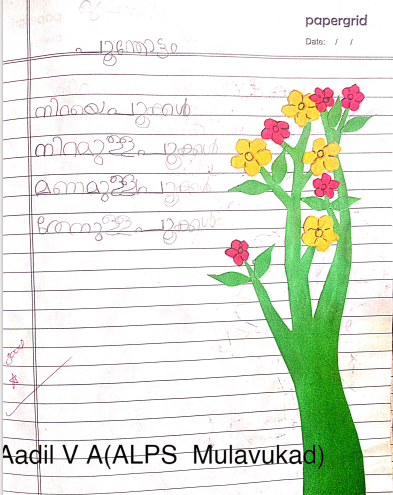 papergrid
Date: / /
പൂന്തോട്ടം
നിറയെ പൂക്കൾ
നിറമുള്ള പൂക്കൾ
മണമുള്ള പൂക്കൾ
തേനുള്ള പൂക്കൾ
Aadil V A(ALPS Mulavukad)